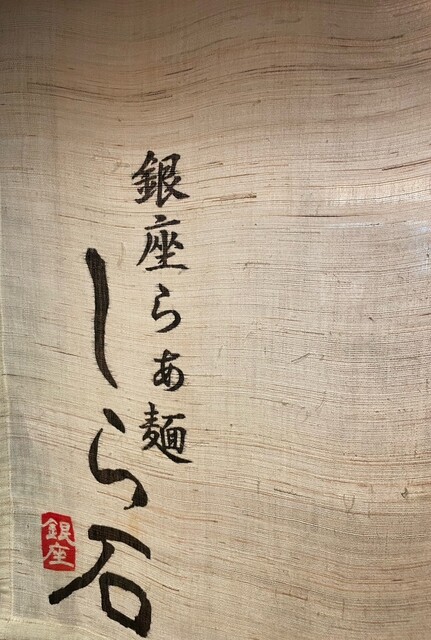 銀座らぁ麺
しら石
銀座